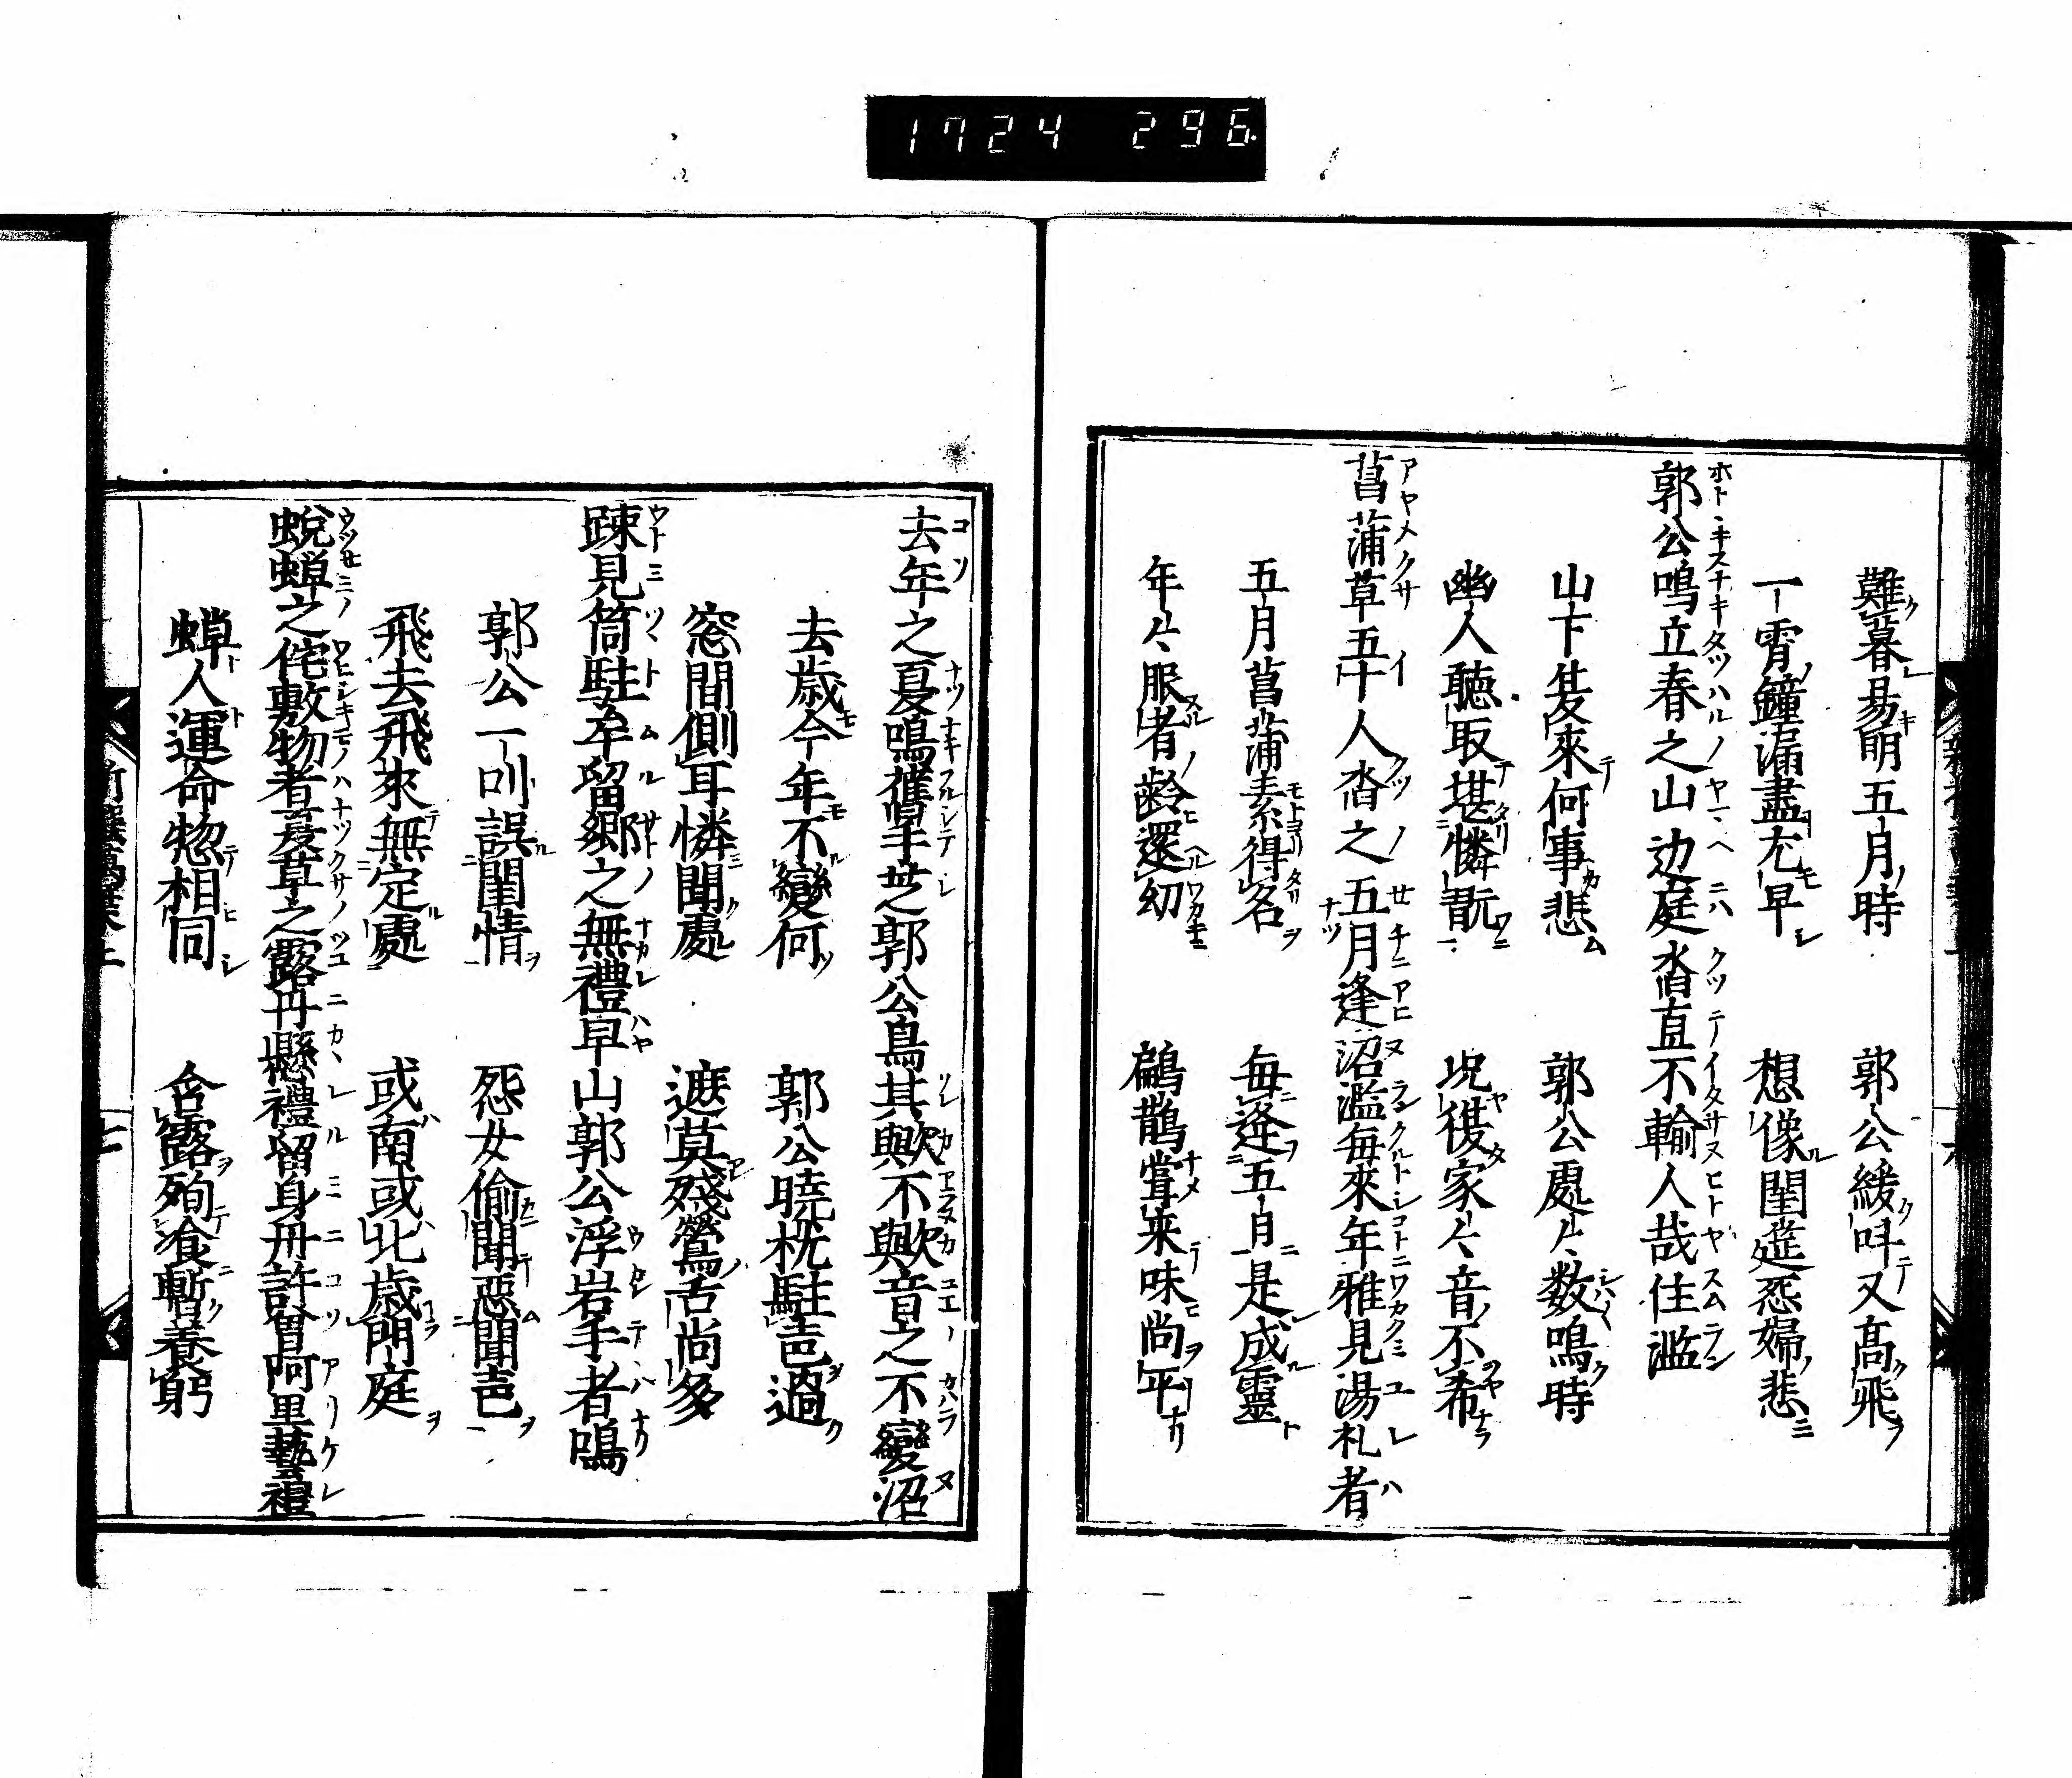 1724 296
難暮易明五月時 郭公緩叫又高飛
一宵鐘漏盡尤早 想像閨筵怨婦悲
郭公鳴立春之山边庭沓直不輸人哉住濫
山下夋來何事悲 郭公處々数鳴時
幽人聽取堪憐翫 况復家々音不希
菖蒲草五十人沓之五月逢沼濫每來年雅見湯礼者
五月菖蒲素得名 每逢五月是成靈
年々服者齡還幼 鶣鵲嘗来味尚平
去年之夏鳴舊手芝郭公鳥其歟不歟音之不變沼
去歲今年不變何 郭公曉枕駐声過
窓間側耳憐聞處 遮莫殘鶯舌尚多
踈見筒駐牟留鄉之無禮早山郭公浮岩手者鳴
郭公一叫誤閨情 怨女偷聞惡聞声
飛去飛來無定處 或南或北歲門庭
蛻蟬之侘敷物者夏草之露丹懸禮留身丹許曾阿里藝禮
蟬人運命惣相同 含露殉飡暫養躬